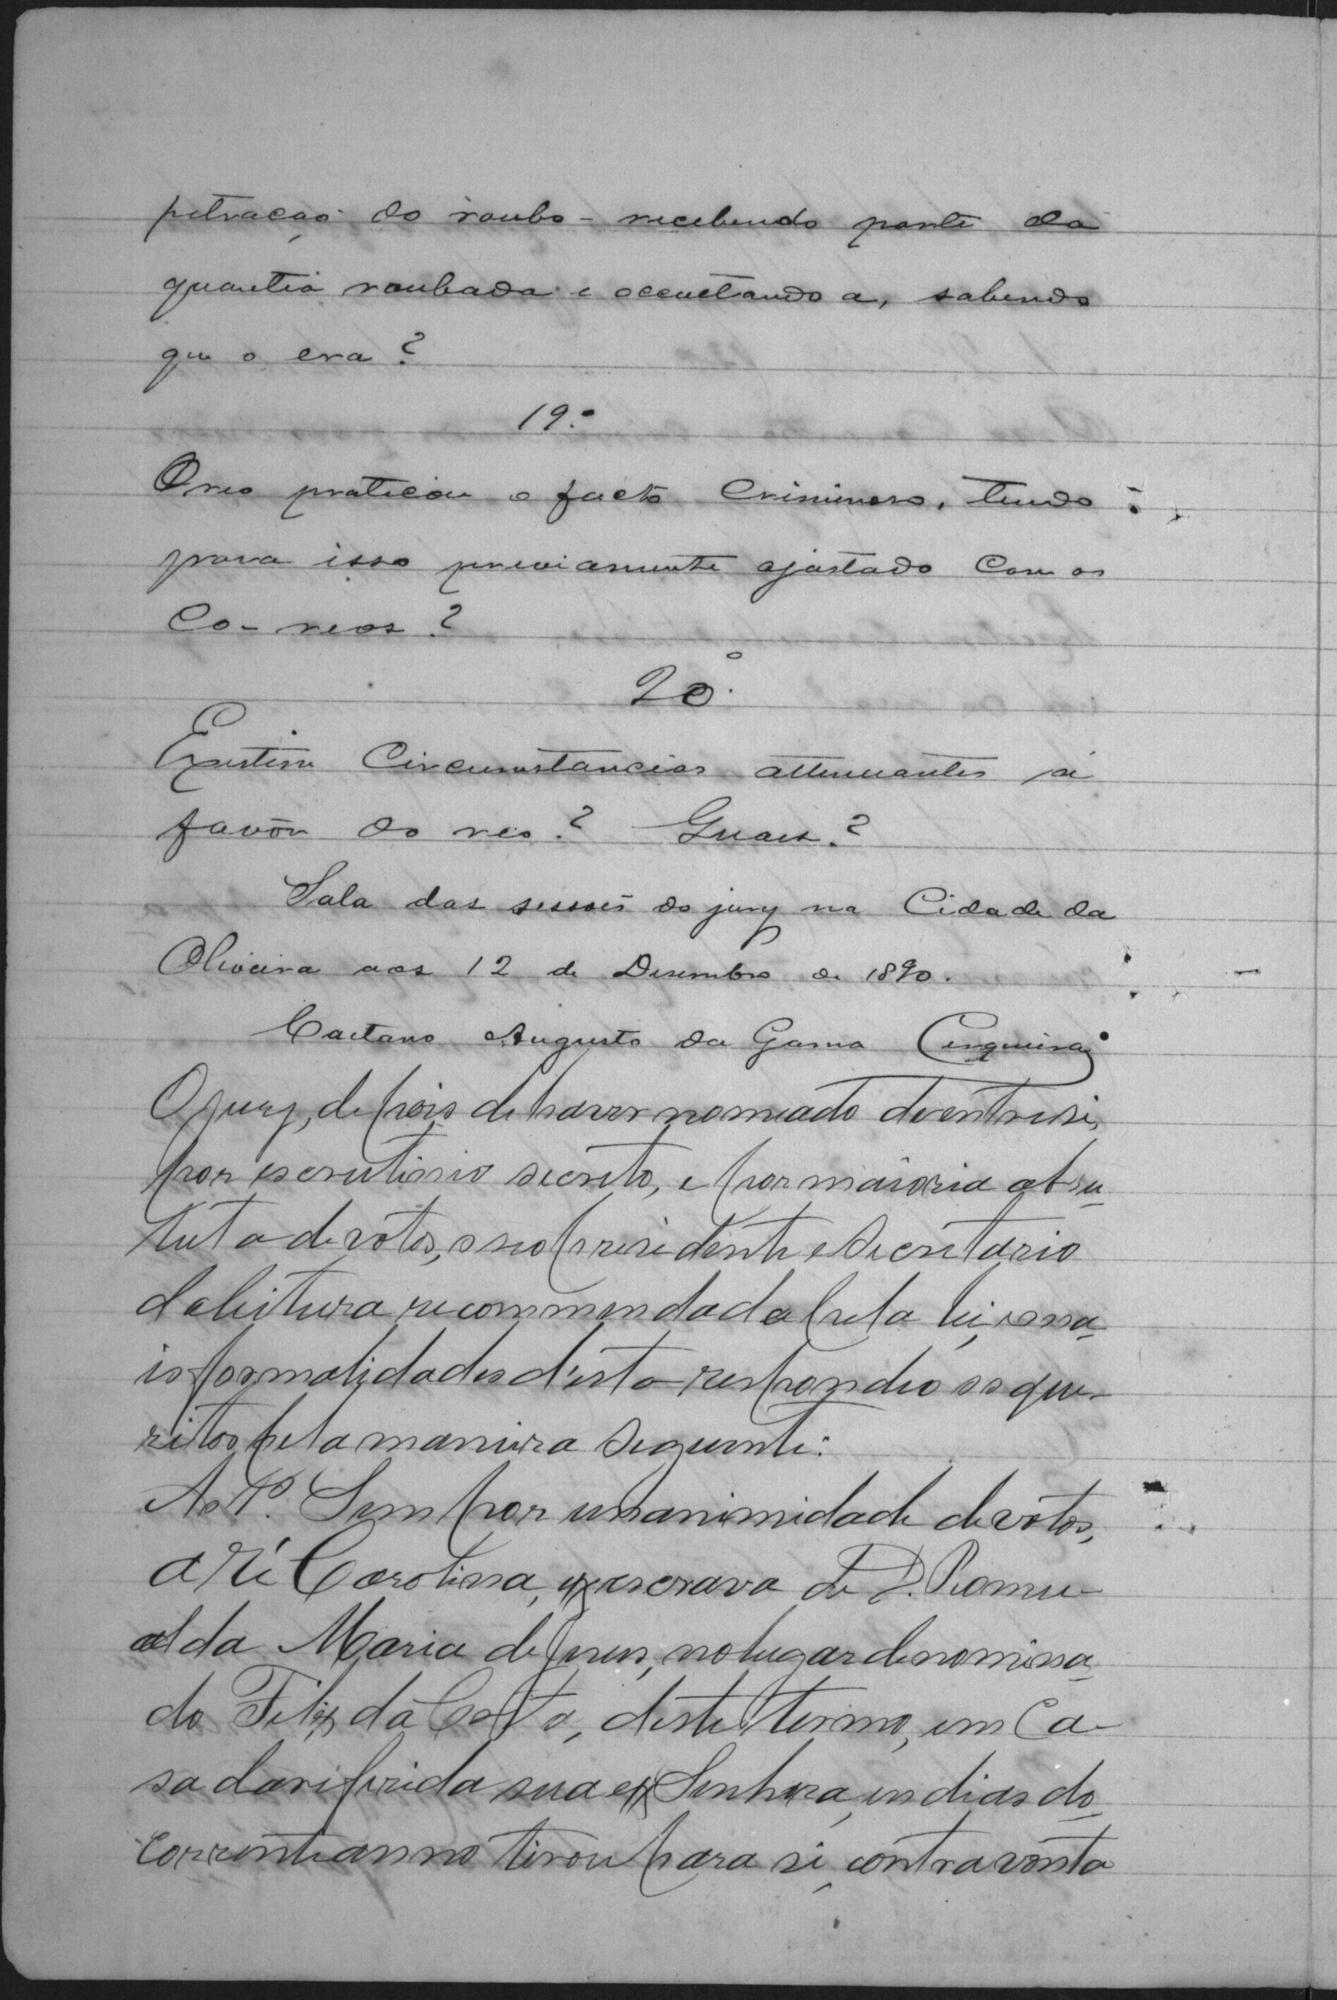 petração do roubo - recebendo parte da
quantia roubada e occultando a, sabendo
que o era?
19.º
O reo praticou o facto criminoso, tendo
para isso previamente ajustado com os
co-reos?
20º
Existem circumstancias attenuantes a
favôr do reo? Quaes?
Sala das sessões do jury na Cidade da
Oliveira aos 12 de Desembro de 1890.
Caetano Augusto da Gama Cerqueira
O jury, depois de haver nomeado dentre si,
por escrutinio secreto, e por maioria absu
luta de votos, o seo presidente e secretario
da leitura recommendada pela lei, e ma
is formalidades d'esta respondeo os que-
zitos pela maneira seguinte:
Ao 1º. Sim por unanimidade de votos,
a ré Carolina, ex escrava de D. Romu-
alda Maria de Jesus, no lugar denomina
do Felix da Costa, deste termo, em ca-
sa da referida sua ex Senhora, em dias do
corrente anno tirou para si, contra vonta